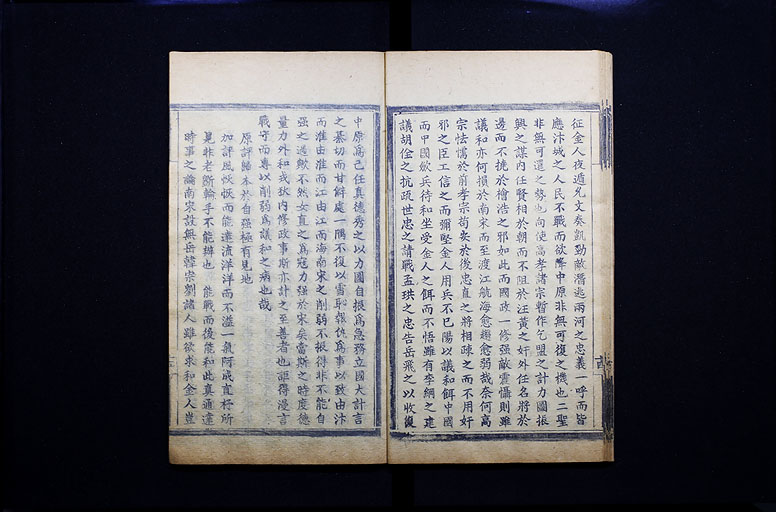 征金人夜遁兄文奏凱勁敵潛逃兩河之忠義一呼而皆
應汴城之人民不戰而欲降中原非無可復之機也二聖
非無可還之勢也向使高孝諸宗暫作乞盟之計力圖振
興之謀内任賢相於朝而不阻於汪黃之奸外任名將於
邊而不撓於檜浩之邪如此而國政一修强敵震懾則雖
議和亦何損於南宋而至渡江航海愈趨愈弱哉奈何高
宗怯懦於前孝宗苟安於後忠直之將相疎之而不用奸
邪之臣工信之而彌堅金人用兵不已陽以議和餌中國
而中國歛兵待和坐受金人之餌而不悟雖有李綱之建
議胡佺之抗疏世忠之請戰孟珙之忠告岳飛之以收復
中原爲己任真德秀之以力圖自振爲急務立國大計言
之綦切而甘僻處一隅不復以雪恥報仇爲事以致由汴
而淮由淮而江由江而海南宋之削弱不振得非不能自
强之過歟不然女直之爲寇力强於宋矣當斯之時度德
量力外和戎狄内修政事斯亦計之至善者也詎得漫言
戰守而專以削弱爲議和之病也哉
原評歸本於自强極有見地
加評風恢恢而能遠流洋洋而不溢一氣呵成直杼所
見非老斲輪手不能辦也 能戰而後能和此真通達
時事之論南宋設無岳韓宗劉諸人雖欲求和金人豈